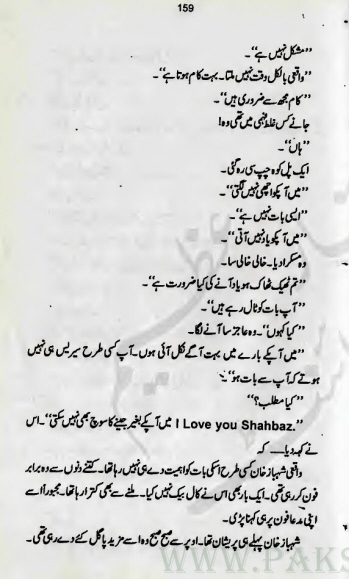 159
"مشکل نہیں ہے"۔
"واقعی بالکل وقت نہیں ملتا۔ بہت کام ہوتا ہے"۔
"کام مجھ سے ضروری ہیں"۔
جانے کس غلط فہمی میں تھی وہ!
"ہاں"۔
ایک پل کو وہ چپ سی رہ گئی۔
"میں آپکو اچھی نہیں لگتی"۔
"ایسی بات نہیں ہے"۔
"میں آپکو یاد نہیں آتی"۔
وہ مسکرا دیا۔ خالی خالی سا۔
"تم ٹھیک ٹھاک ہو یاد آنے کی کیا ضرورت ہے"۔
"آپ بات کو ٹال رہے ہیں"۔
"کیا کہوں"۔ وہ عاجز سا آنے لگا۔
"میں آپکے بارے میں بہت آگے نکل آئی ہوں۔ آپ کسی طرح سیریس ہی نہیں
ہوتے کہ آپ سے بات ہو"۔
"کیا مطلب؟"
"I Love you Shahbaz. میں آپکے بغیر جینے کا سوچ بھی نہیں سکتی"۔ اس
نے کہہ دیا۔۔۔۔ کہ
واقعی شہباز خان کسی طرح اسکی بات کو اہمیت دے ہی نہیں رہا تھا۔ کتنے دنوں سے وہ برابر
فون کر رہی تھی۔ ایک بار بھی اس نے کال بیک نہیں کیا۔ ملنے سے بھی کترا رہا تھا۔ مجبوراً اسے
اپنی مدعا فون پر ہی کہنا پڑی۔
شہباز خان پہلے ہی پریشان تھا۔ اوپر سے صبح صبح وہ اسے مزید پاگل کئے دے رہی تھی۔
WWW.PAKS